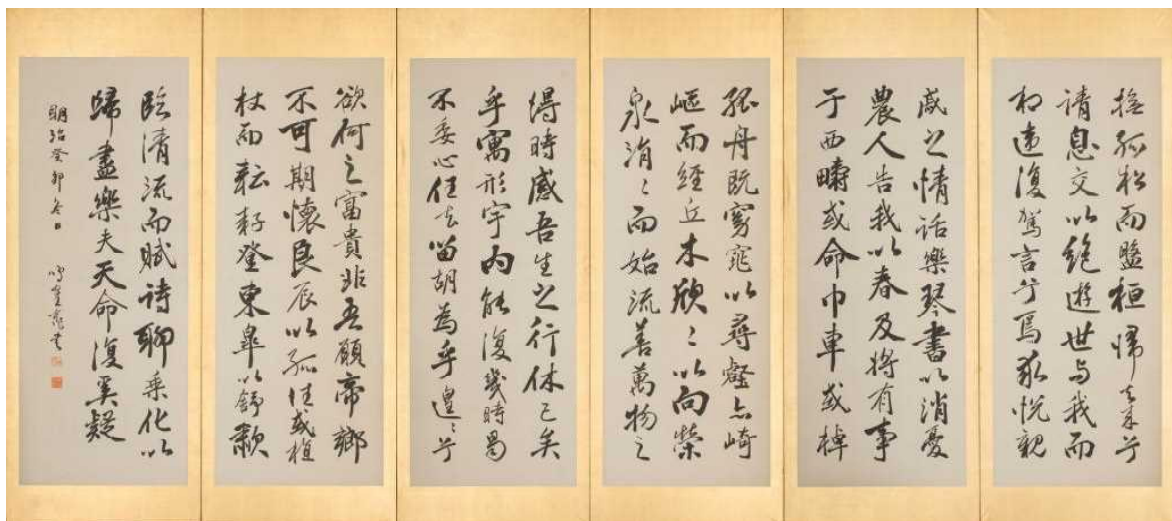 撫孤松而盤桓歸去来兮
請息交以絶遊世与我而
相違復駕言兮焉求悦親
戚之情話樂琴書以消憂
農人告我以春及将有事
于西疇或命巾車或棹
孤舟既窈窕以尋壑亦崎
嶇而經丘木欣〻以向榮
泉涓〻而始流善萬物之
得時感吾生之行休已矣
乎寓形宇内能復幾時曷
不委心任去留胡為乎遑〻兮
欲何之富貴非吾願帝鄉
不可期懷良辰以孤往或植
杖而耘耔登東皐以舒歗
臨清流而賦詩聊乘化以
歸盡樂夫天命復奚疑
明治癸卯冬日 鳴隺 書